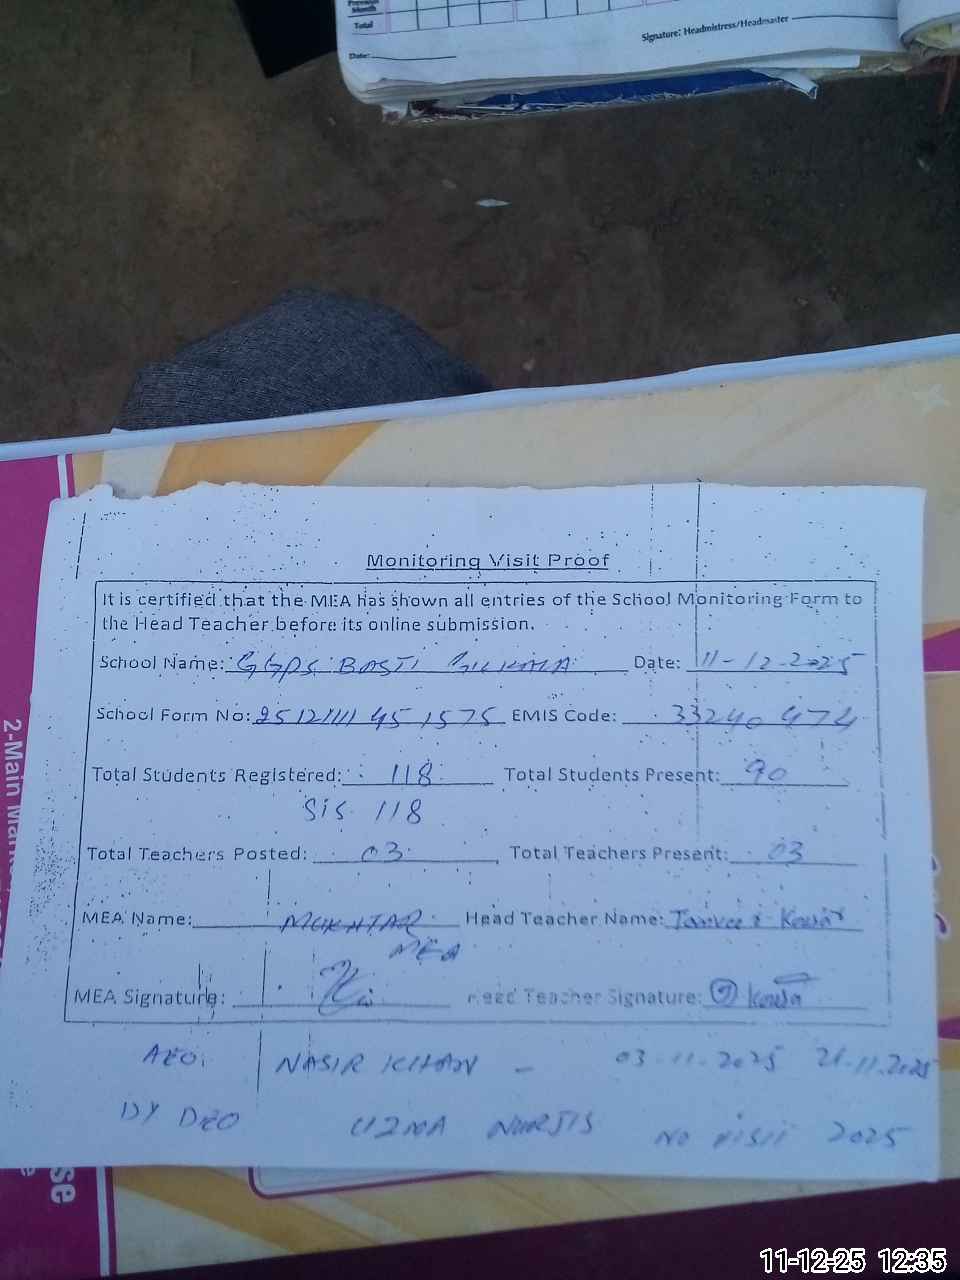 Previous
Month
Total
Date:
Signature: Headmistress/Headmaster
Monitoring Visit Proof
It is certified that the MEA has shown all entries of the School Monitoring Form to
the Head Teacher before its online submission.
School Name: GGPS BASTI Date: 11-12-2025
School Form No: EMIS Code: 33240474
Total Students Registered: 118 Total Students Present: 90
SIS 118
Total Teachers Posted: 03 Total Teachers Present: 03
MEA Name: MUKHTAR Head Teacher Name: Kousar
MEA
MEA Signature: Head Teacher Signature:
AEO. NASIR KHAN - 03-11-2025 21-11-2025
DY DEO UZMA NO VISIT 2025
2-Main
se
11-12-25 12:35